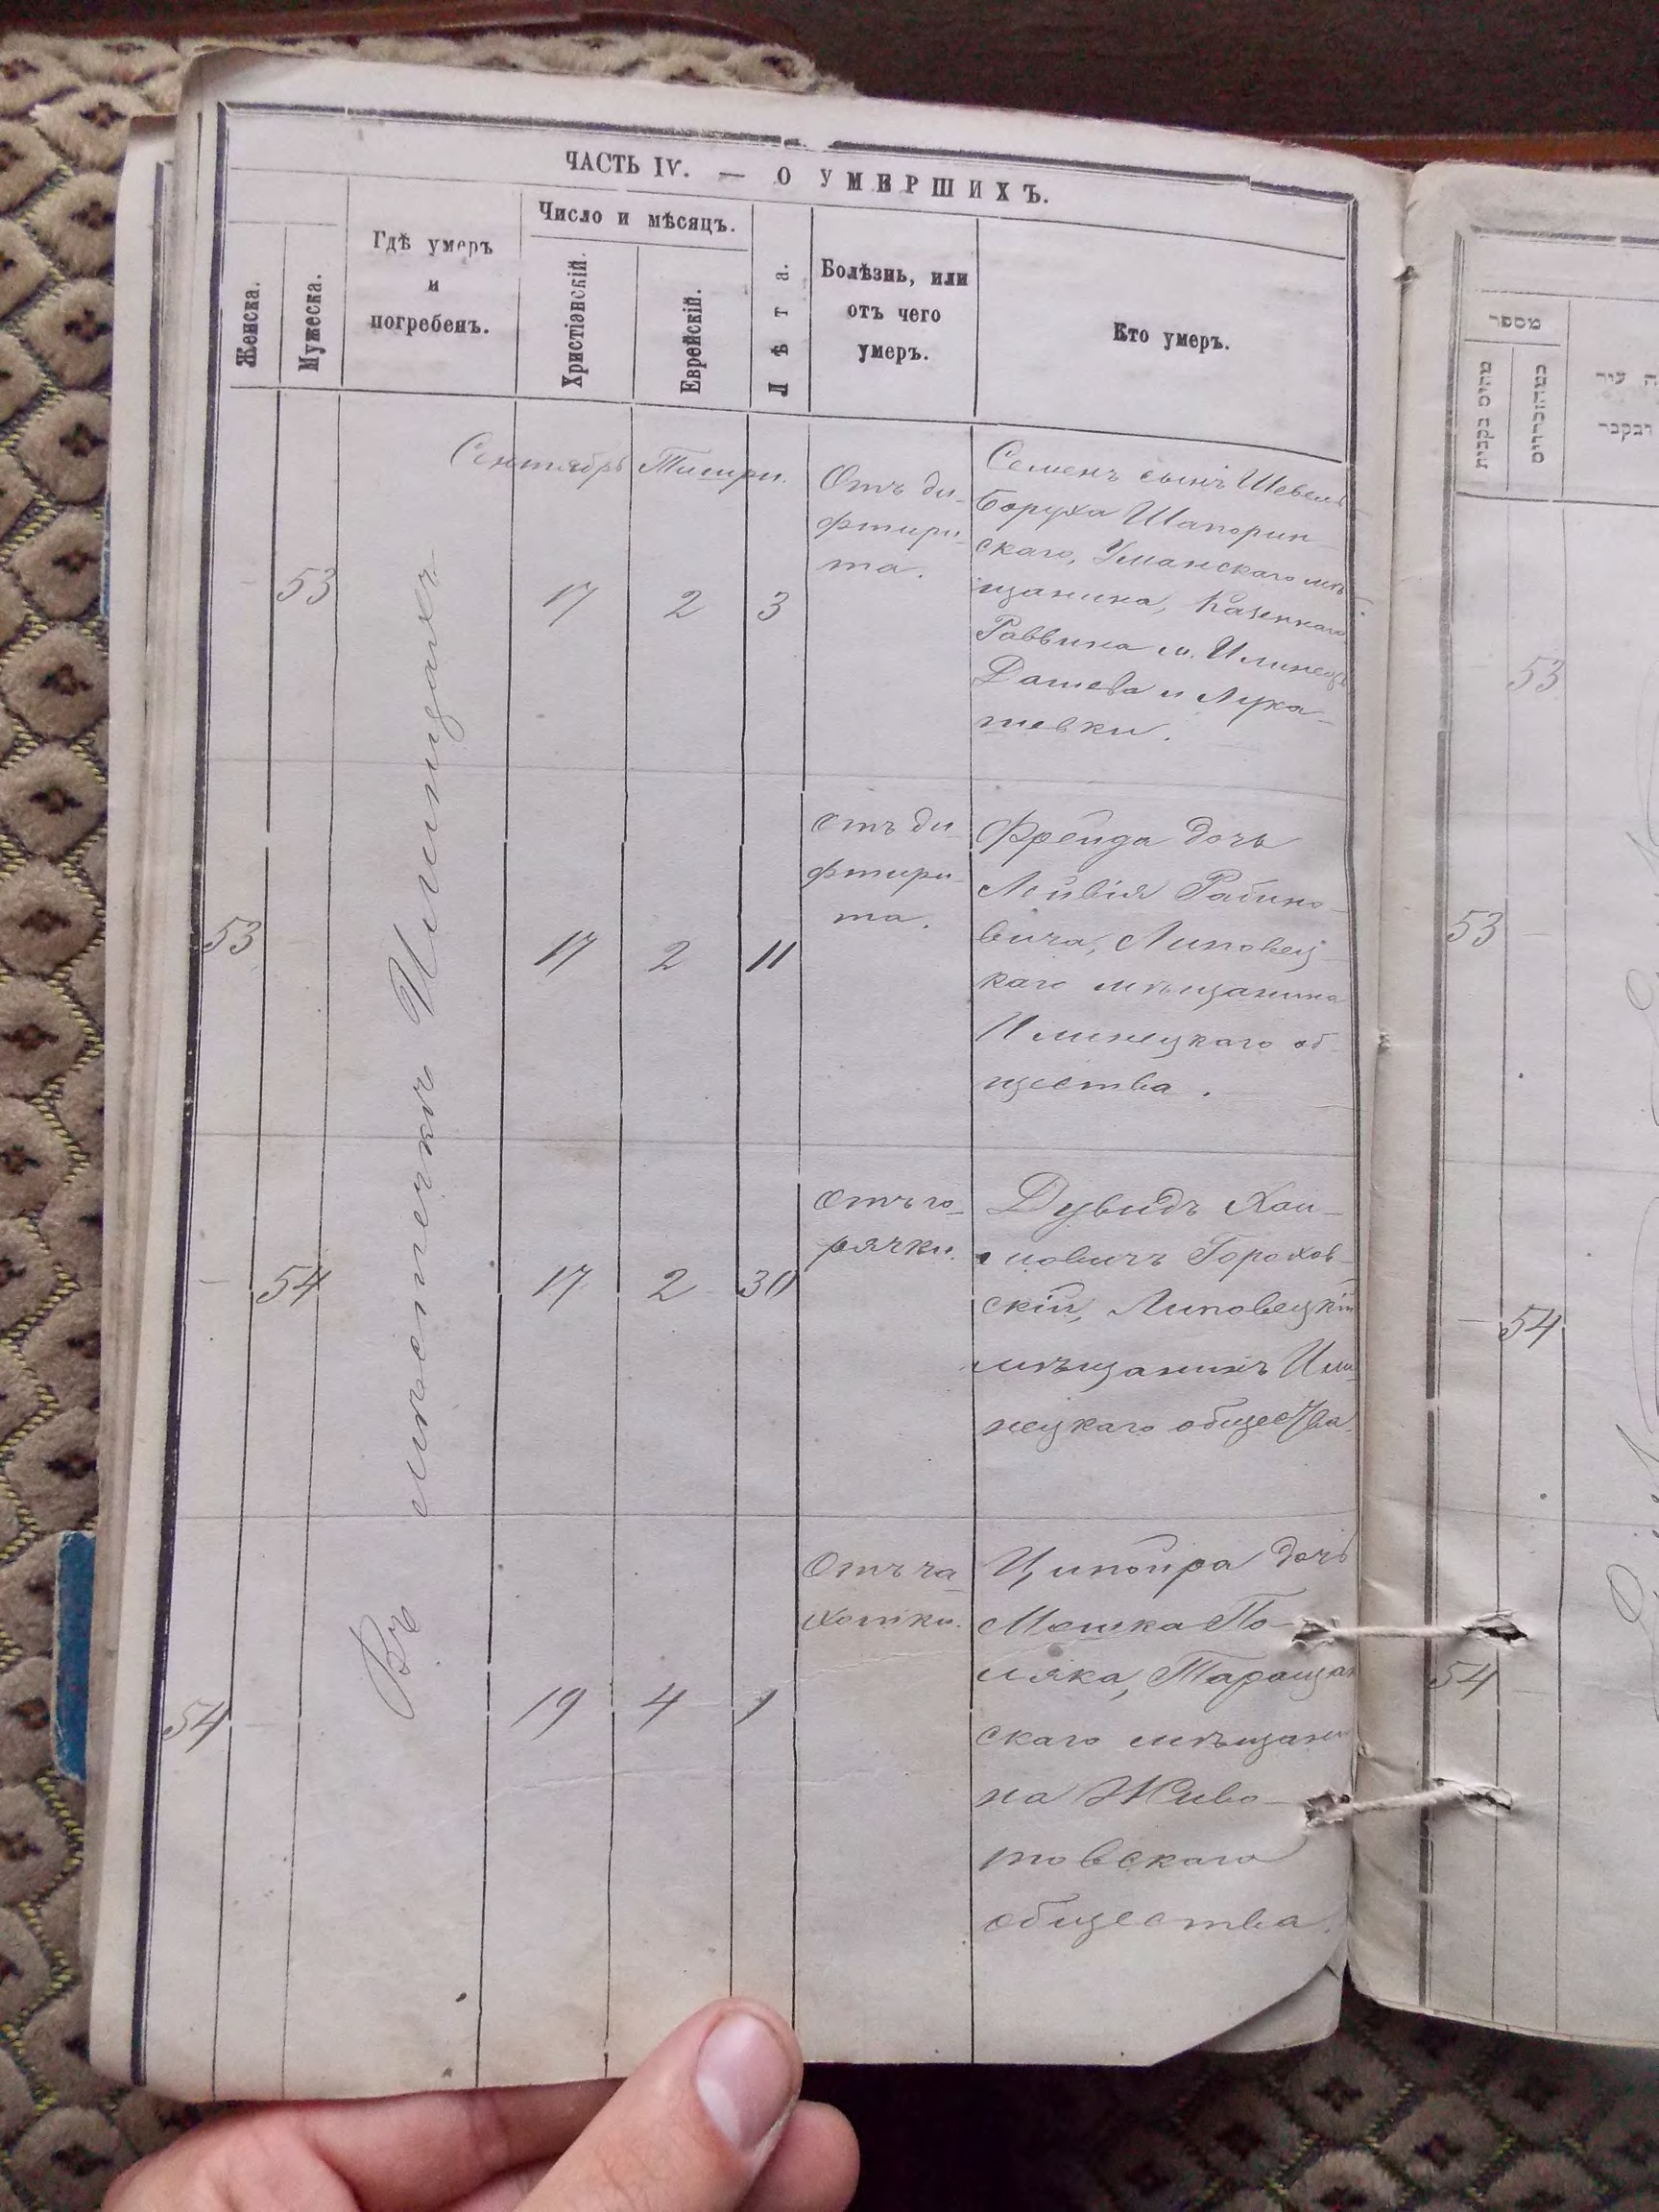 ЧАСТЬ IV. — О УМЕРШИХЪ.
Женска.
Мужеска.
Гдѣ умеръ
и
погребенъ.
Число и мѣсяцъ.
Христіанскій.
Еврейскій.
Лѣта.
Болѣзнь, или
отъ чего
умеръ.
Кто умеръ.
Сентябрь Тишри.
Въ мѣстечкѣ Илинцахъ
53
17
2
3
Отъ ди-
фтири-
та.
Семенъ сынъ Шевель
Боруха Шапорин-
скаго, Уманскаго мѣ-
щанина, Казеннаго
Раввина м. Илинецъ
Дашева и Лука-
шевки.
53
17
2
11
Отъ ди-
фтири-
та.
Фрейда дочь
Лейвія Рабино-
вича, Липовец-
каго мѣщанина
Илинецкаго об-
щества.
54
17
2
30
Отъ го-
рячки.
Дувидъ Хаи-
мовичъ Горохов-
скій, Липовецкій
мѣщанинъ Или-
нецкаго общества.
54
19
4
1
Отъ ча-
хотки.
Ципойра дочь
Мошка По-
ляка, Таращан
скаго мѣщани
на Живо-
товскаго
общества.
מספר
53
53
54
54